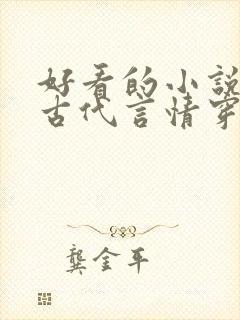 好看的小說
古代言情穿
龔金平